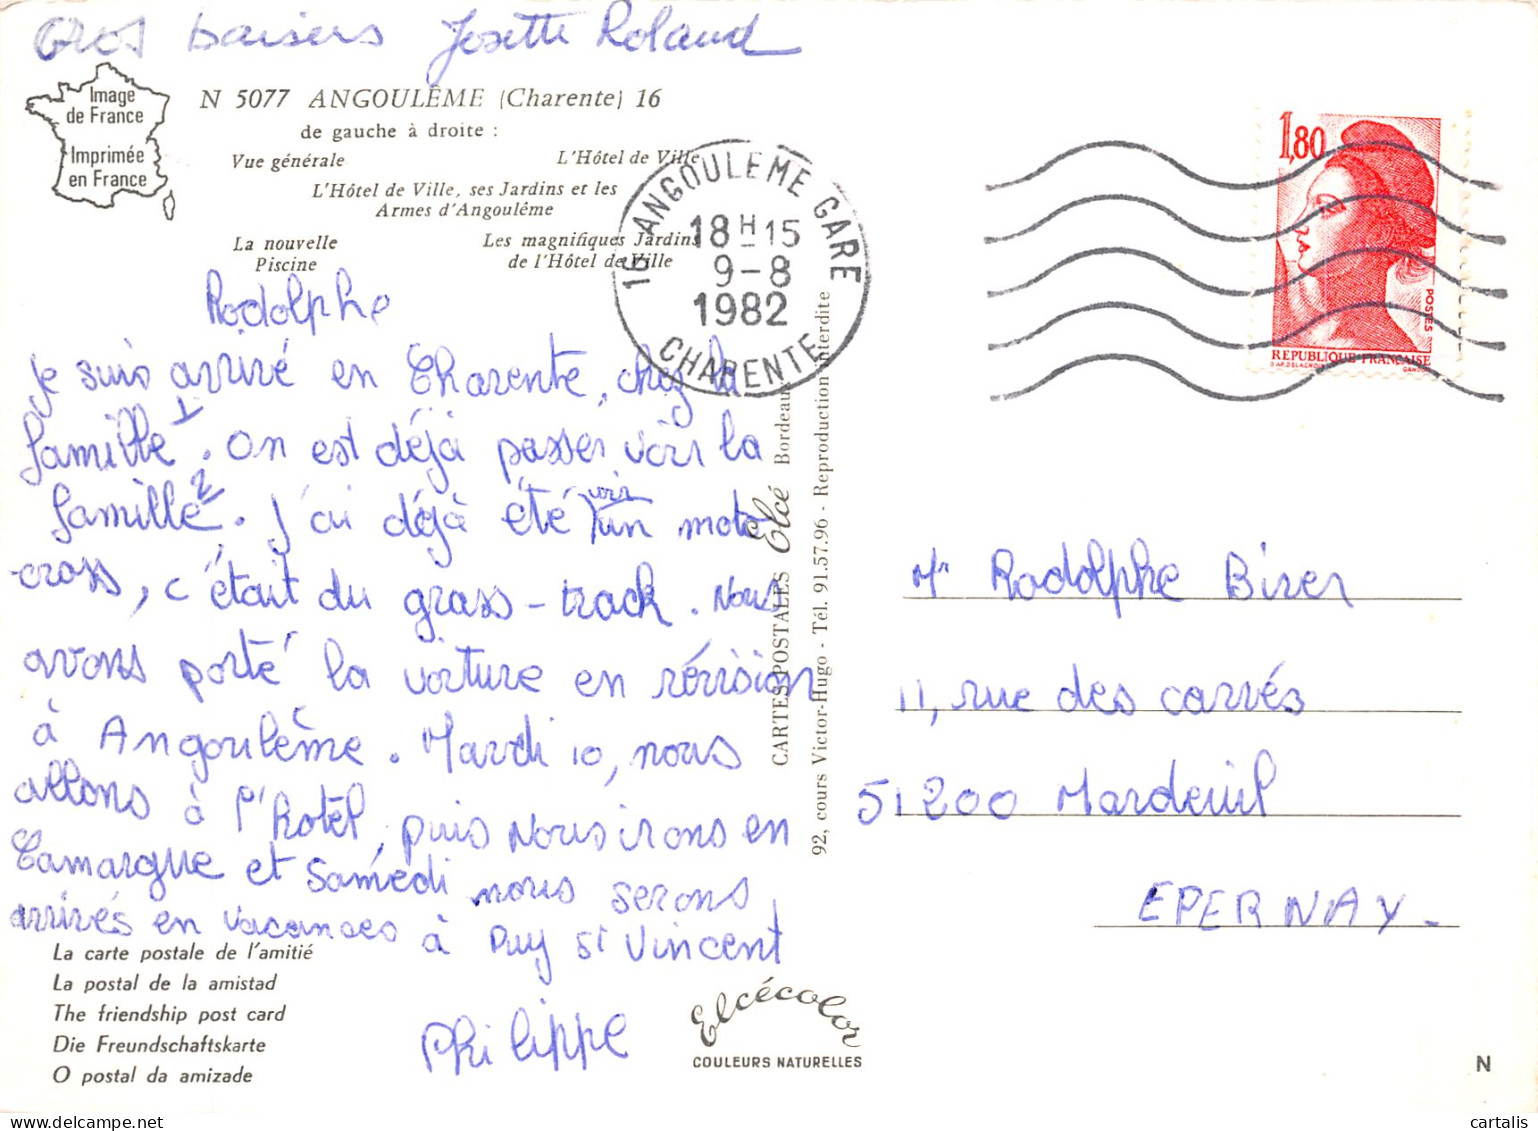 Gros baisers Josette Roland
Image
de France
Imprimée
en France
N 5077 ANGOULÊME (Charente) 16
de gauche à droite :
Vue générale L'Hôtel de Ville
L'Hôtel de Ville, ses Jardins et les
Armes d'Angoulême
La nouvelle
Piscine
Les magnifiques Jardins
de l'Hôtel de Ville
16 ANGOULEME GARE
18H15
9-8
1982
CHARENTE
1,80
POSTES
REPUBLIQUE FRANÇAISE
D'AP. DELACROIX GANDON
Rodolphe
Je suis arrivé en Charente, chez la
famille 1. On est déjà passer voir la
famille 2. J'ai déjà été voir un moto
cross, c'était du grass-track. Nous
avons porté la voiture en révision
à Angoulême. Mardi 10, nous
allons à l'hotel, puis nous irons en
Camargue et Samedi nous serons
arrivés en vacances à Puy St Vincent
Philippe
CARTES POSTALES Elcé Bordeaux
92, cours Victor-Hugo - Tél. 91.57.96 - Reproduction interdite
Mr Rodolphe Biver
11, rue des carrés
51200 Mardeuil
EPERNAY_
La carte postale de l'amitié
La postal de la amistad
The friendship post card
Die Freundschaftskarte
O postal da amizade
Elcécolor
COULEURS NATURELLES
N
cartalis
www.delcampe.net